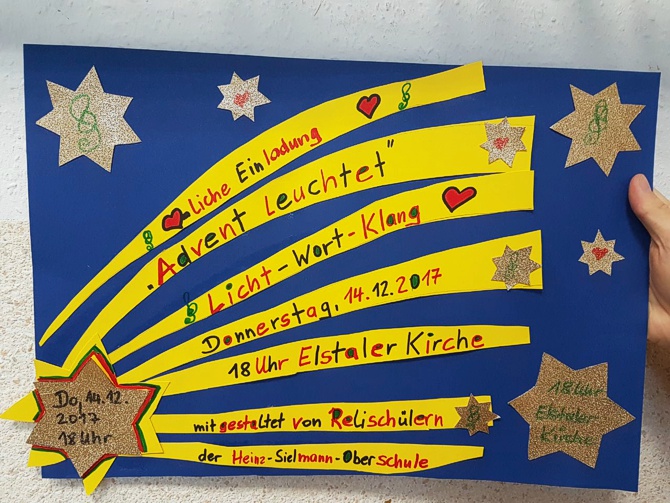 ❤liche Einladung
"Advent leuchtet"
Licht-Wort-Klang
Donnerstag, 14.12.2017
18 Uhr Elstaler Kirche
mitgestaltet von Relischülern
der Heinz-Sielmann-Oberschule
Do, 14.12.
2017
18 Uhr
18 Uhr
Elstaler
Kirche